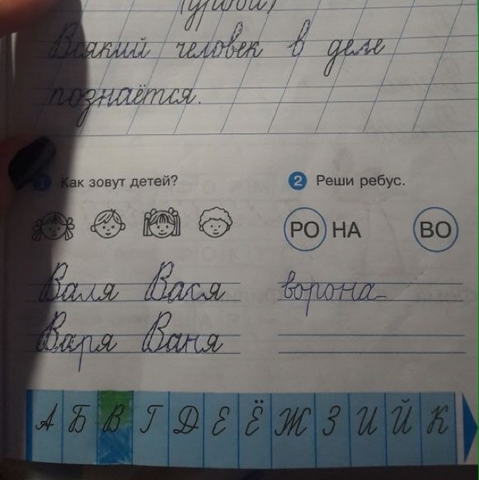 (дробью)
Всякий человек в деле
познаётся.
1 Как зовут детей?
Валя Вася
Варя Ваня
2 Реши ребус.
РО НА ВО
ворона
А Б В Г Д Е Ё Ж З И Й К